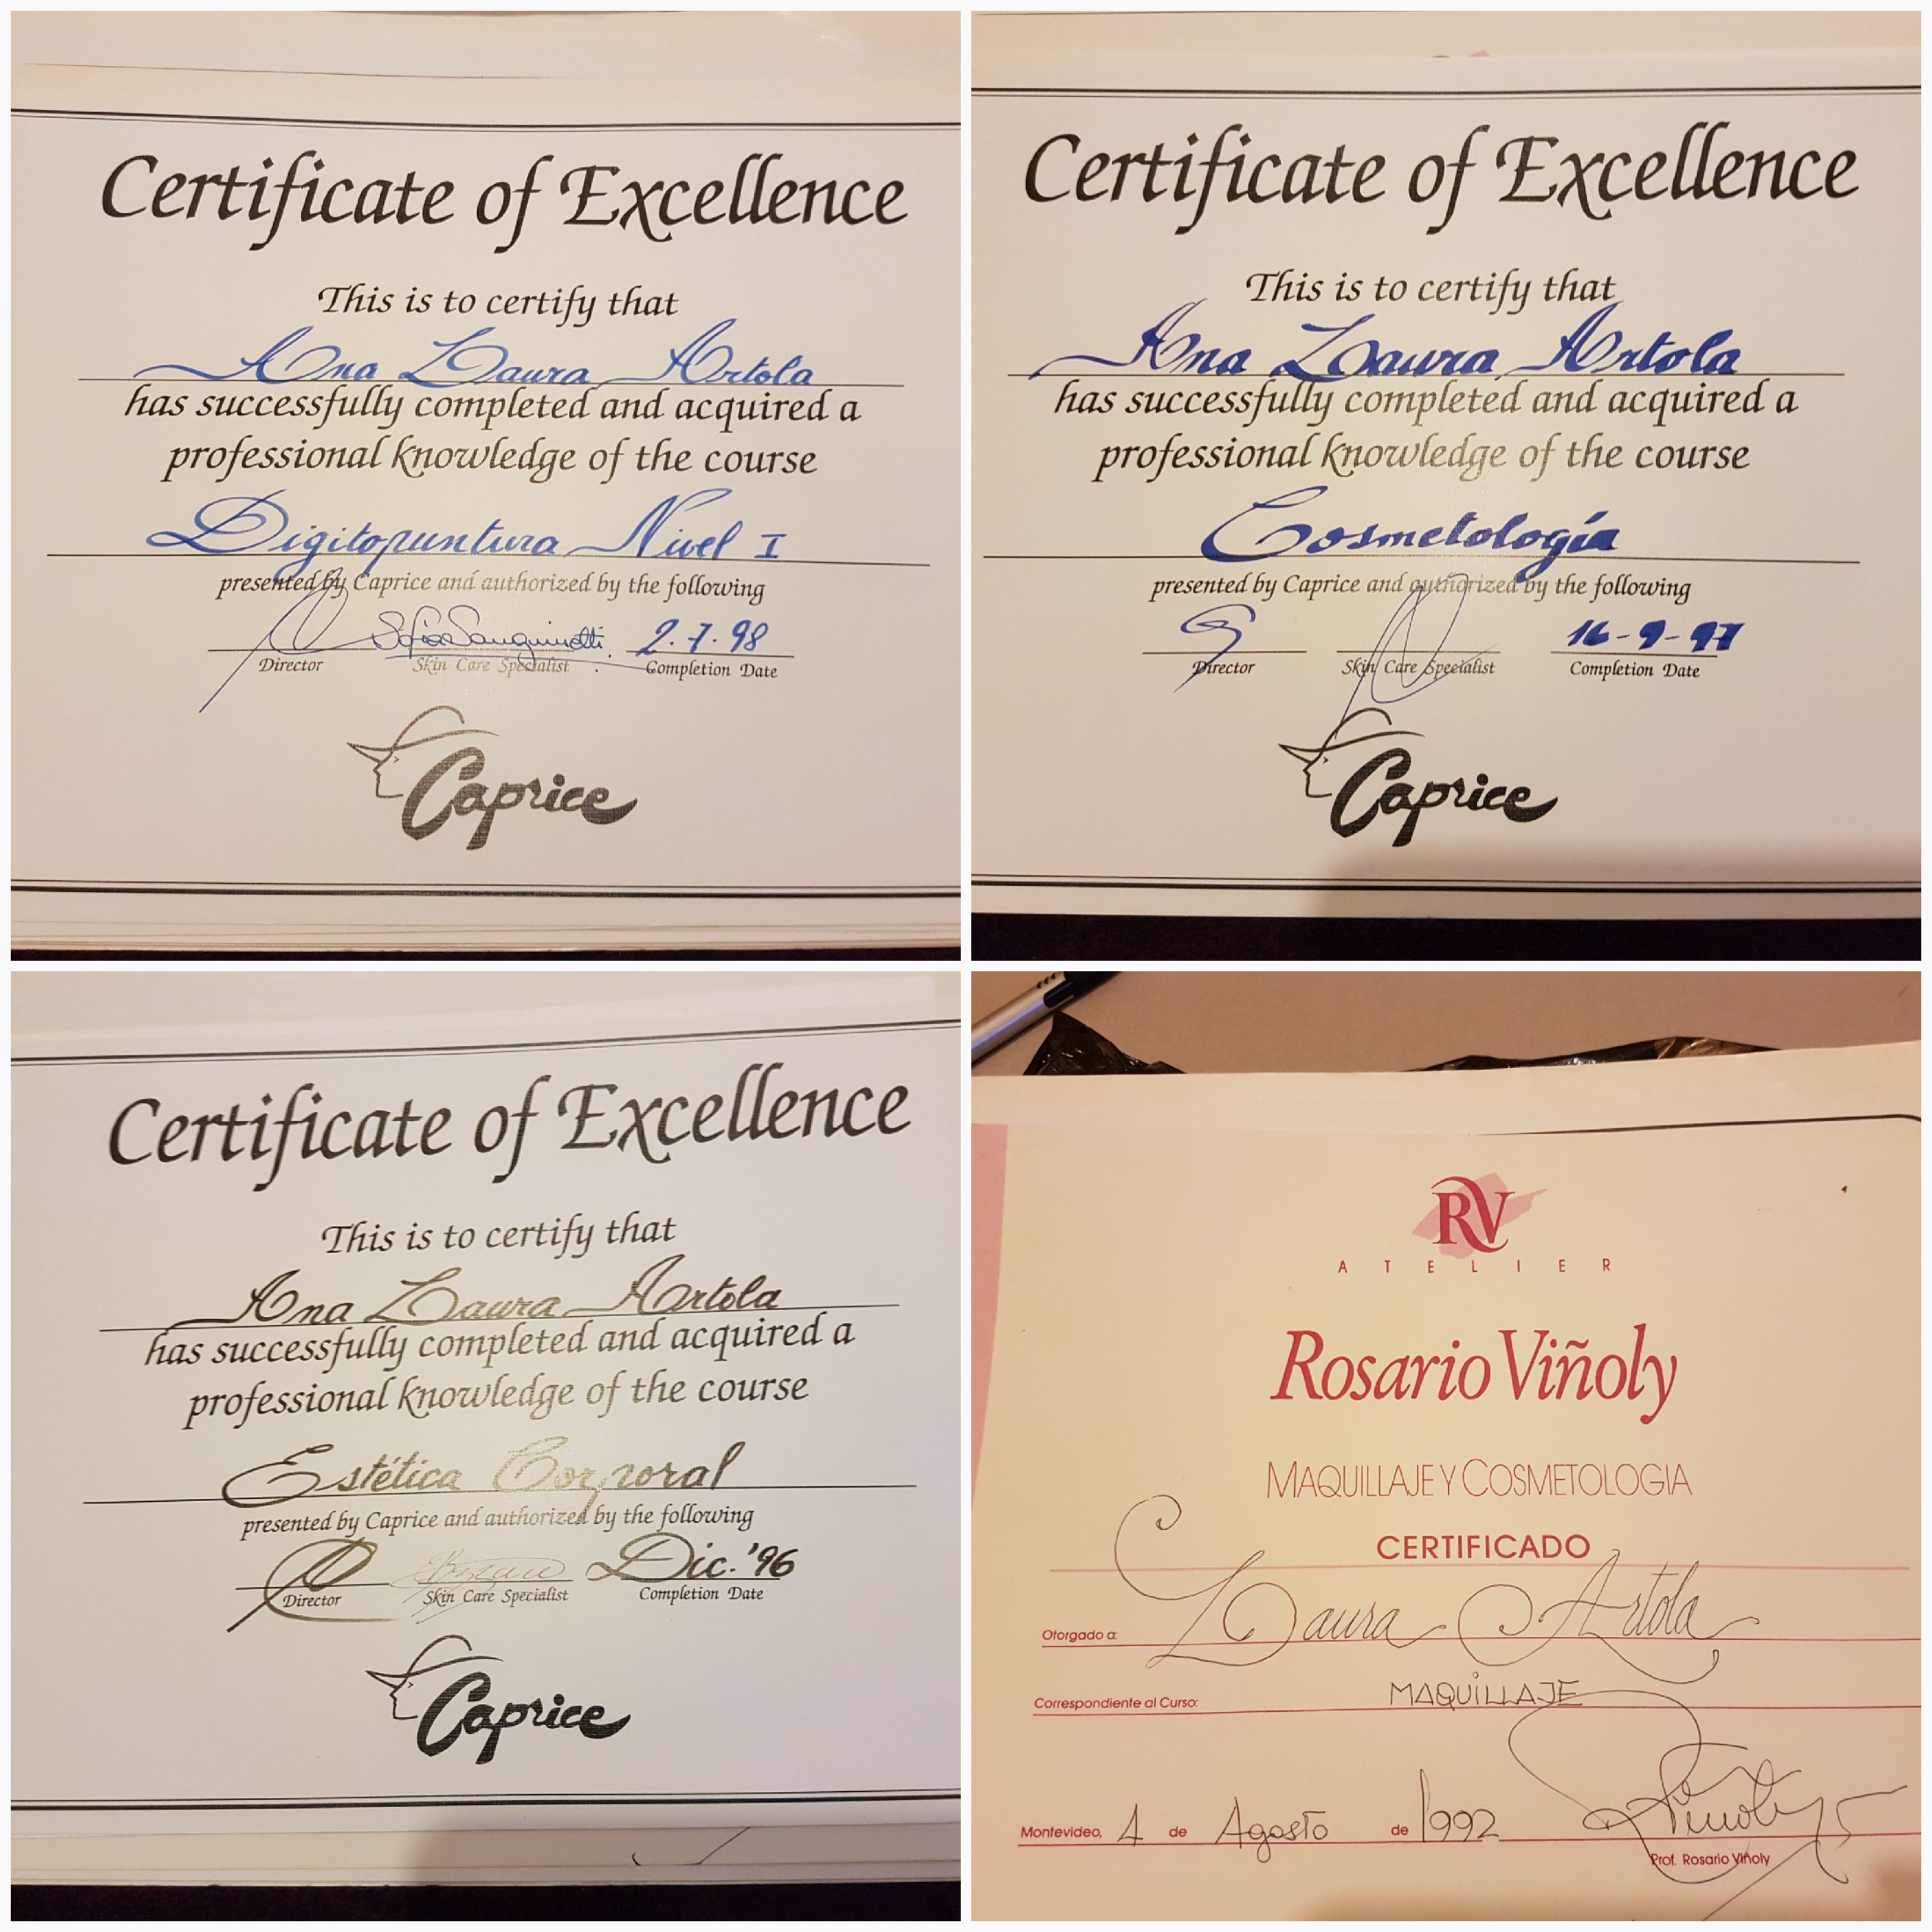 Certificate of Excellence
This is to certify that
Ana Laura Artola
has successfully completed and acquired a
professional knowledge of the course
Digitopuntura Nivel I
presented by Caprice and authorized by the following
Sofia Sanguinetti 2.7.98
Director Skin Care Specialist Completion Date
Caprice
Certificate of Excellence
This is to certify that
Ana Laura Artola
has successfully completed and acquired a
professional knowledge of the course
Cosmetología
presented by Caprice and authorized by the following
16-9-97
Director Skin Care Specialist Completion Date
Caprice
Certificate of Excellence
This is to certify that
Ana Laura Artola
has successfully completed and acquired a
professional knowledge of the course
Estética Corporal
presented by Caprice and authorized by the following
Dic. '96
Director Skin Care Specialist Completion Date
Caprice
RV
ATELIER
Rosario Viñoly
MAQUILLAJE Y COSMETOLOGIA
CERTIFICADO
Otorgado a: Laura Artola
Correspondiente al Curso: MAQUILLAJE
Montevideo, 4 de Agosto de 1992
Prof. Rosario Viñoly